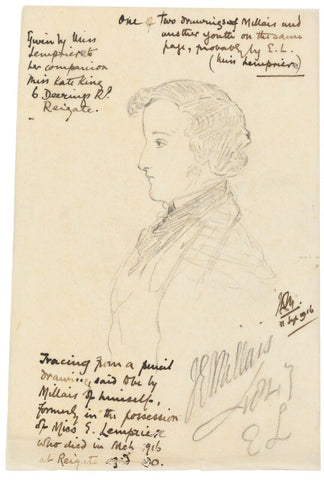 One of Two drawings of Millais and
another youth on the same
page, probably by E.L.
(Miss Lempriere)
Given by Miss
Lempriere to
her companion
Miss Kate King
6 Deerings Rd.
Reigate.
11 Sep 1916
JE Millais
1847
EL
Tracing from a pencil
drawing, said to be by
Millais of himself,
formerly in the possession
of Miss E. Lempriere
who died in Mch 1916
at Reigate